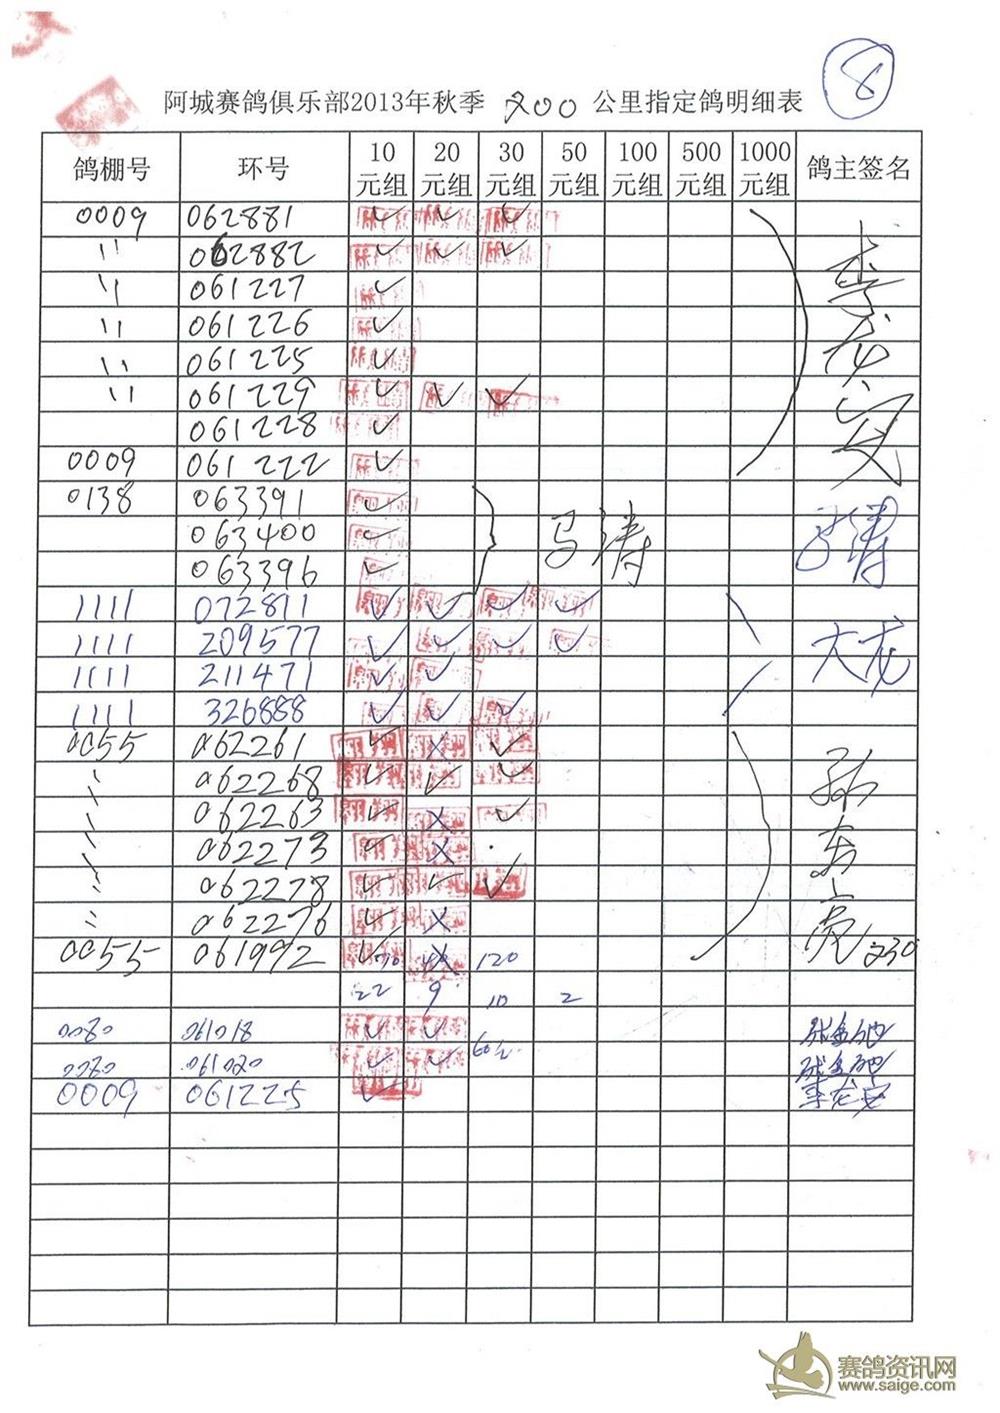 8
阿城赛鸽俱乐部2013年秋季 200 公里指定鸽明细表
鸽棚号 环号 10元组 20元组 30元组 50元组 100元组 500元组 1000元组 鸽主签名
0009 062881 ✓ ✓ ✓
〃 062882 ✓ ✓ ✓
〃 061227 ✓
〃 061226 ✓
〃 061225 ✓
〃 061229 ✓ ✓ ✓
061228 ✓
0009 061222 ✓
李龙安
0138 063391 ✓
063400 ✓ 马涛 马涛
063396 ✓
1111 072811 ✓ ✓ ✓ ✓
1111 209577 ✓ ✓ ✓ ✓ 大龙
1111 211471 ✓ ✓
1111 326888 ✓ ✓ ✓
0055 062261 ✓ × ✓
〃 062268 ✓ ✓ ✓
〃 062263 ✓ × ✓
〃 062273 ✓ ×
〃 062278 ✓ ✓ ✓
〃 062276 ✓ ×
0055 061992 ✓ × 120 230
孙东亮
22 9 10 2
0080 061018 ✓ ✓
0080 061020 ✓ ✓ 60
0009 061225 ✓ 李龙安
赛鸽资讯网
www.saige.com